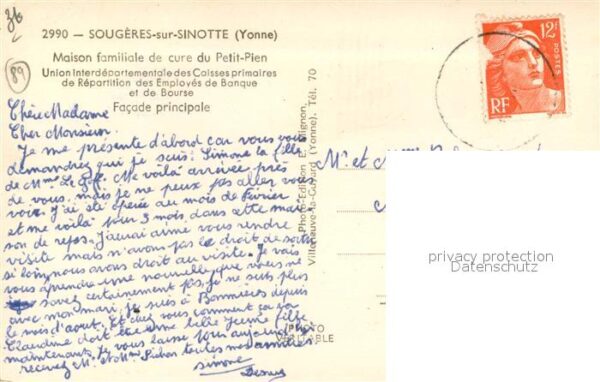 36
89
2990 — SOUGÈRES-sur-SINOTTE (Yonne)
Maison familiale de cure du Petit-Pien
Union Interdépartementale des Caisses primaires
de Répartition des Employés de Banque
et de Bourse
Façade principale
Chère Madame
Cher Monsieur.
Je me présente d'abord car vous vous
demandrez qui je suis : Simone la fille
de Mme Le Goff. Me voilà arrivée près
de vous, mais je ne peux pas aller vous
voir. J'ai été opérée au mois de Février
et me voilà pour 3 mois dans cette mai-
son de repos. J'aurai aimé vous rendre
visite mais n'avons pas le droit de sortir
si loin, nous avons droit au visite. Je vais
vous aprendre une nouvelle que vous ne
savez certainement pas, je ne suis plus
avec mon mari, je suis à depuis
le mois d'août. Et chez vous comment ça va
Claudine doit être une belle jeune fille
maintenant. Je vous laisse pour aujourd'hui
recevez Mr. et Mme toutes mes amitiés
Simone
Photo-Edition E. Mignon,
Villeneuve-la-Guyard (Yonne). Tél. 70
PHOTO
VERITABLE
12F
POSTES
RF
Mr et
privacy protection
Datenschutz